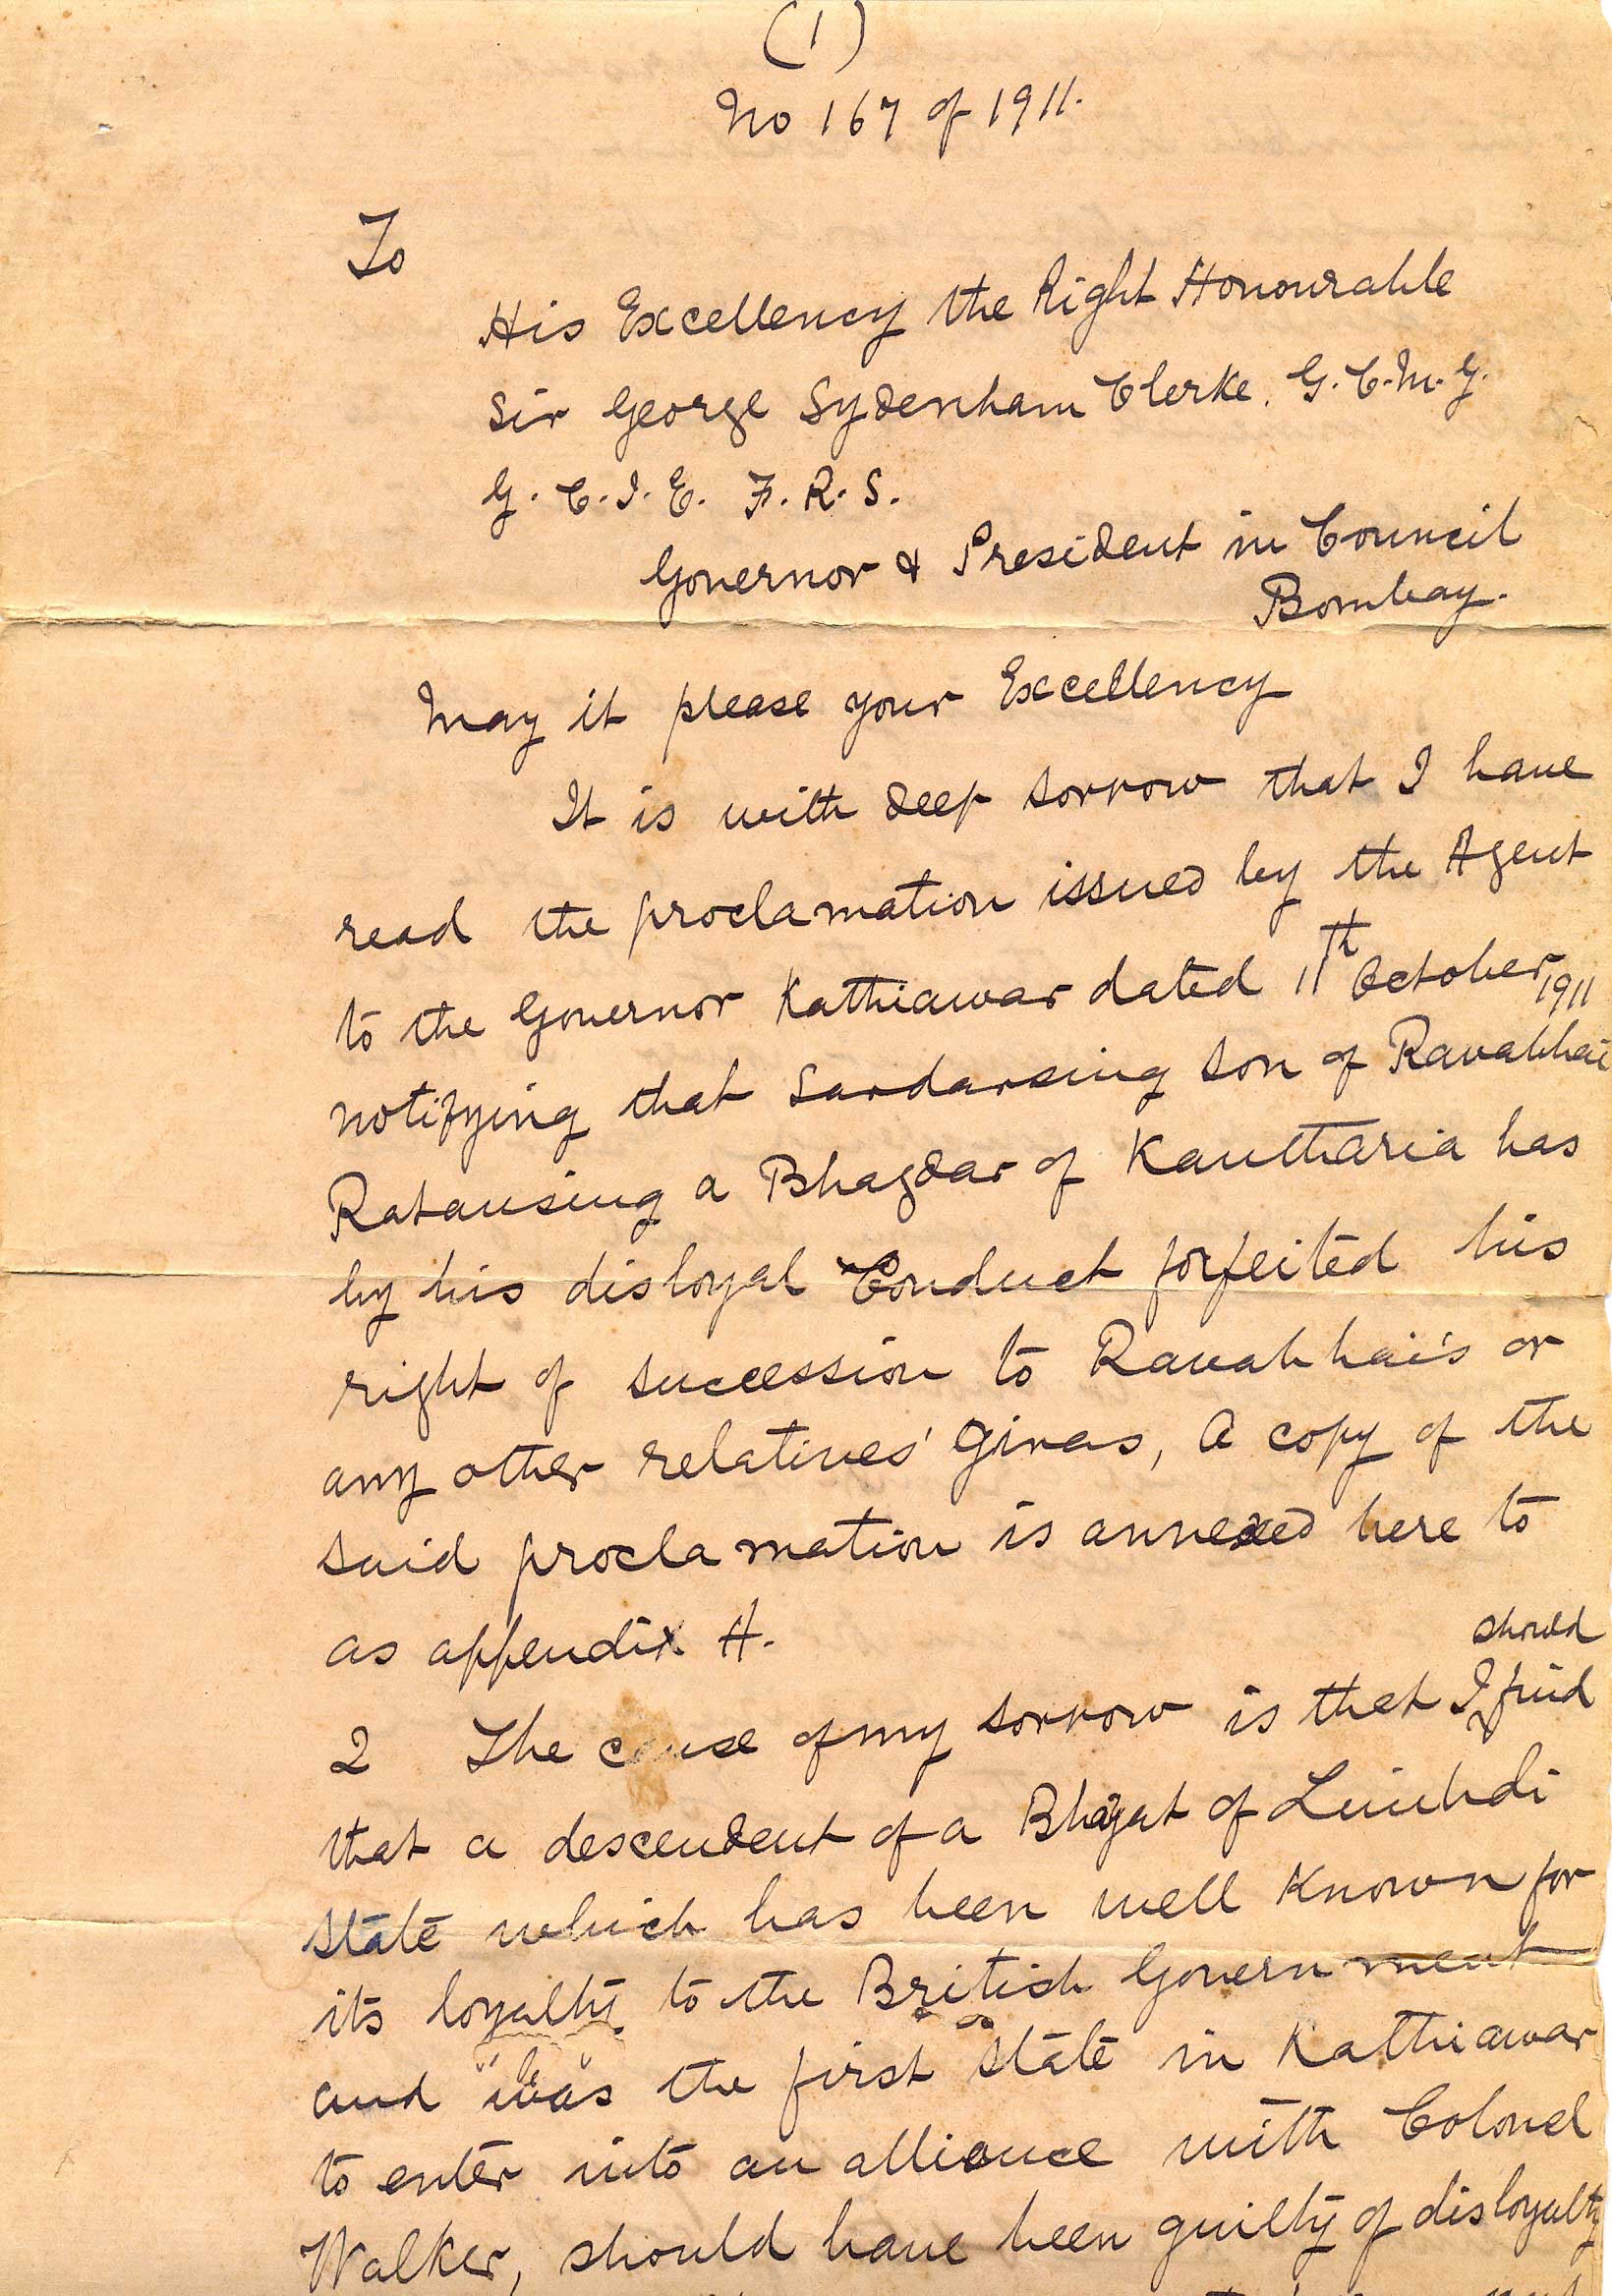 (1)
No 167 of 1911.
To
His Excellency the Right Honourable
Sir George Sydenham Clerke. G.C.M.G.
G.C.I.E. F.R.S.
Governor & President in Council
Bombay.
May it please your Excellency
It is with deep sorrow that I have
read the proclamation issued by the Agent
to the Governor Kathiawar dated 11th October 1911
notifying that Sardarsing son of Ravabhai
Ratansing a Bhagdar of Kantharia has
by his disloyal Conduct forfeited his
right of succession to Ravabhai's or
any other relatives' Giras, A copy of the
said proclamation is annexed here to
as appendix A.
should
2 The cause of my sorrow is that I find
that a descendent of a Bhayat of Limbdi
State which has been well known for
its loyalty to the British Government
and was the first State in Kathiawar
to enter into an alliance with Colonel
Walker, should have been guilty of disloyalty